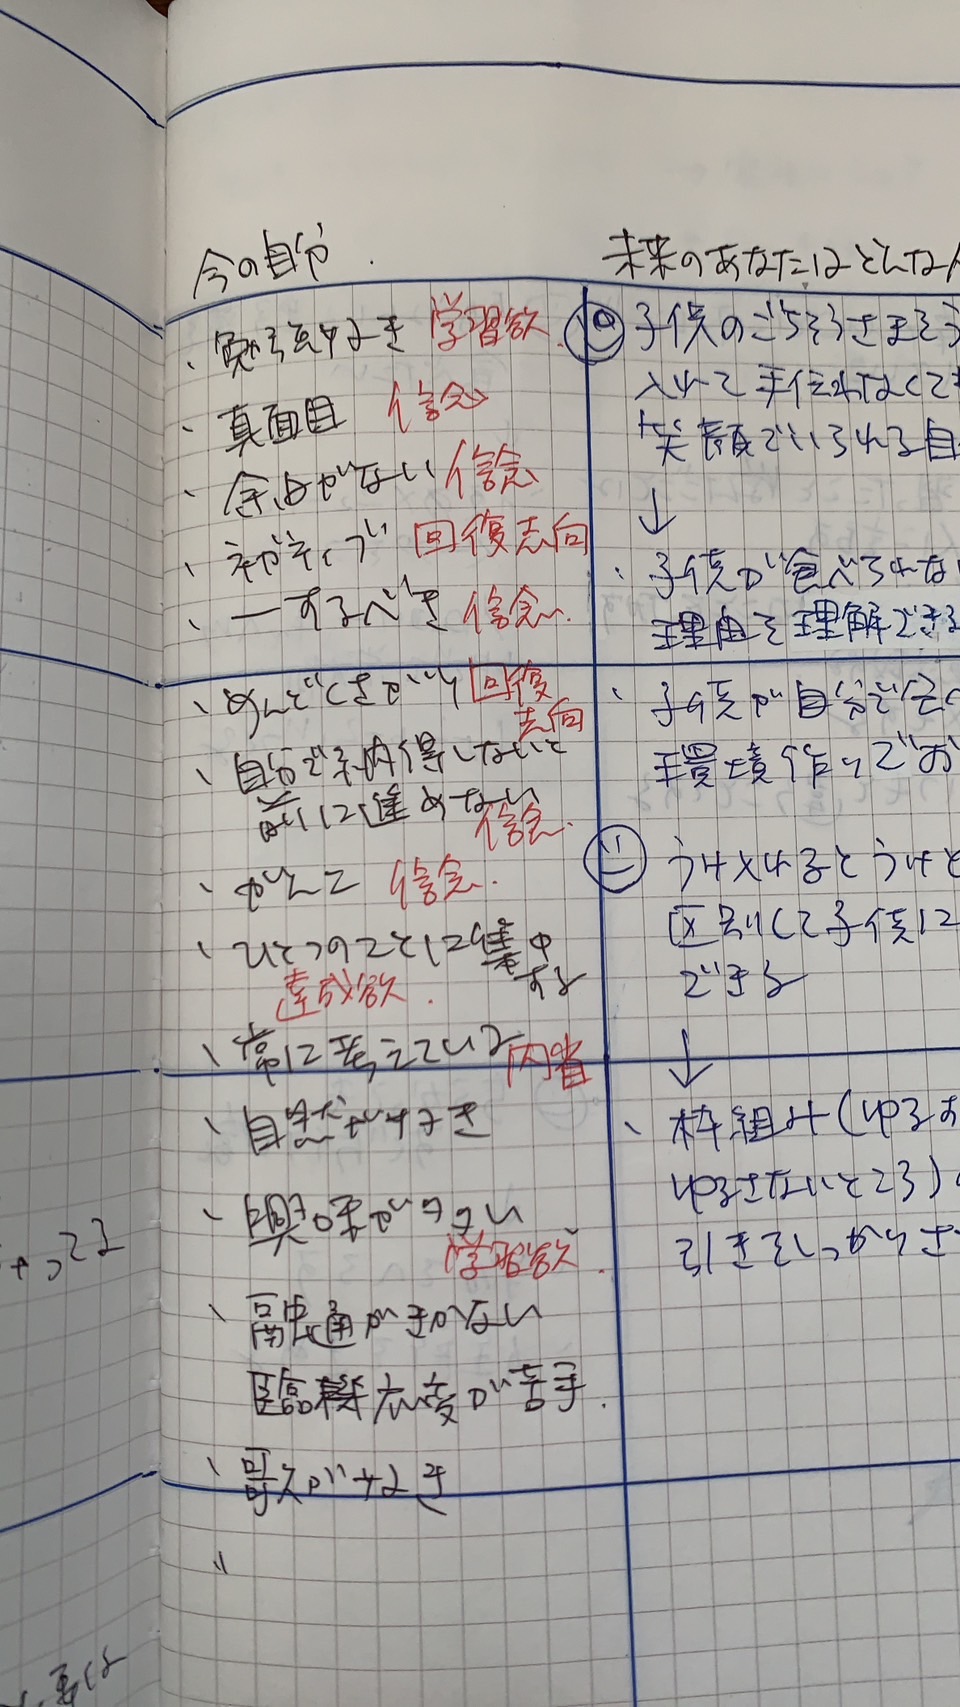 今の自分.
・勉強すき 学習欲
・真面目 信念
・余白がない 信念
・ネガティブ 回復志向
・ーするべき 信念.
・めんどくさがり 回復
志向
・自分で納得しないと
前に進めない
信念.
・がんこ 信念.
・ひとつのことに集中
する
達成欲.
・常に考えている 内省
・自然がすき
・興味が多い
学習欲.
・融通がきかない
臨機応変が苦手.
・歌がすき
未来のあなたはどんな
子供のごちそうさまを
入れて手伝わなくても
笑顔でいられる自
↓
・子供が食べられない
理由を理解できる
・子供が自分で
環境作りで
うけ入れるとうけ
区別して子供に
できる
↓
・枠組み(ゆるす
ゆるさないところ)
引きをしっかりさ
ってる